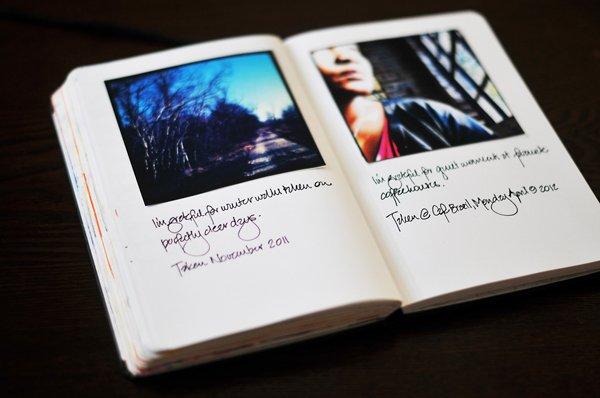 I'm grateful for winter walks taken on
perfectly clear days.
Taken November 2011
I'm grateful for quiet moments at favourite
coffeehouses.
Taken @ Café Brazil, Monday April 9 2012